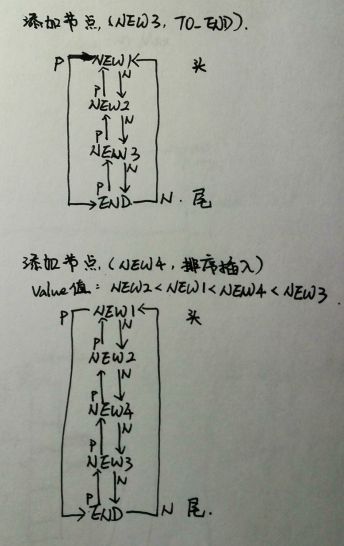 添加节点.(NEW3, TO_END).
P NEW1 头
P N
NEW2
P N
NEW3
P N
END N. 尾
添加节点.(NEW4, 排序插入)
Value值: NEW2<NEW1<NEW4<NEW3.
P NEW1 头
P N
NEW2
P N
NEW4
P N
NEW3
P N
END N 尾.